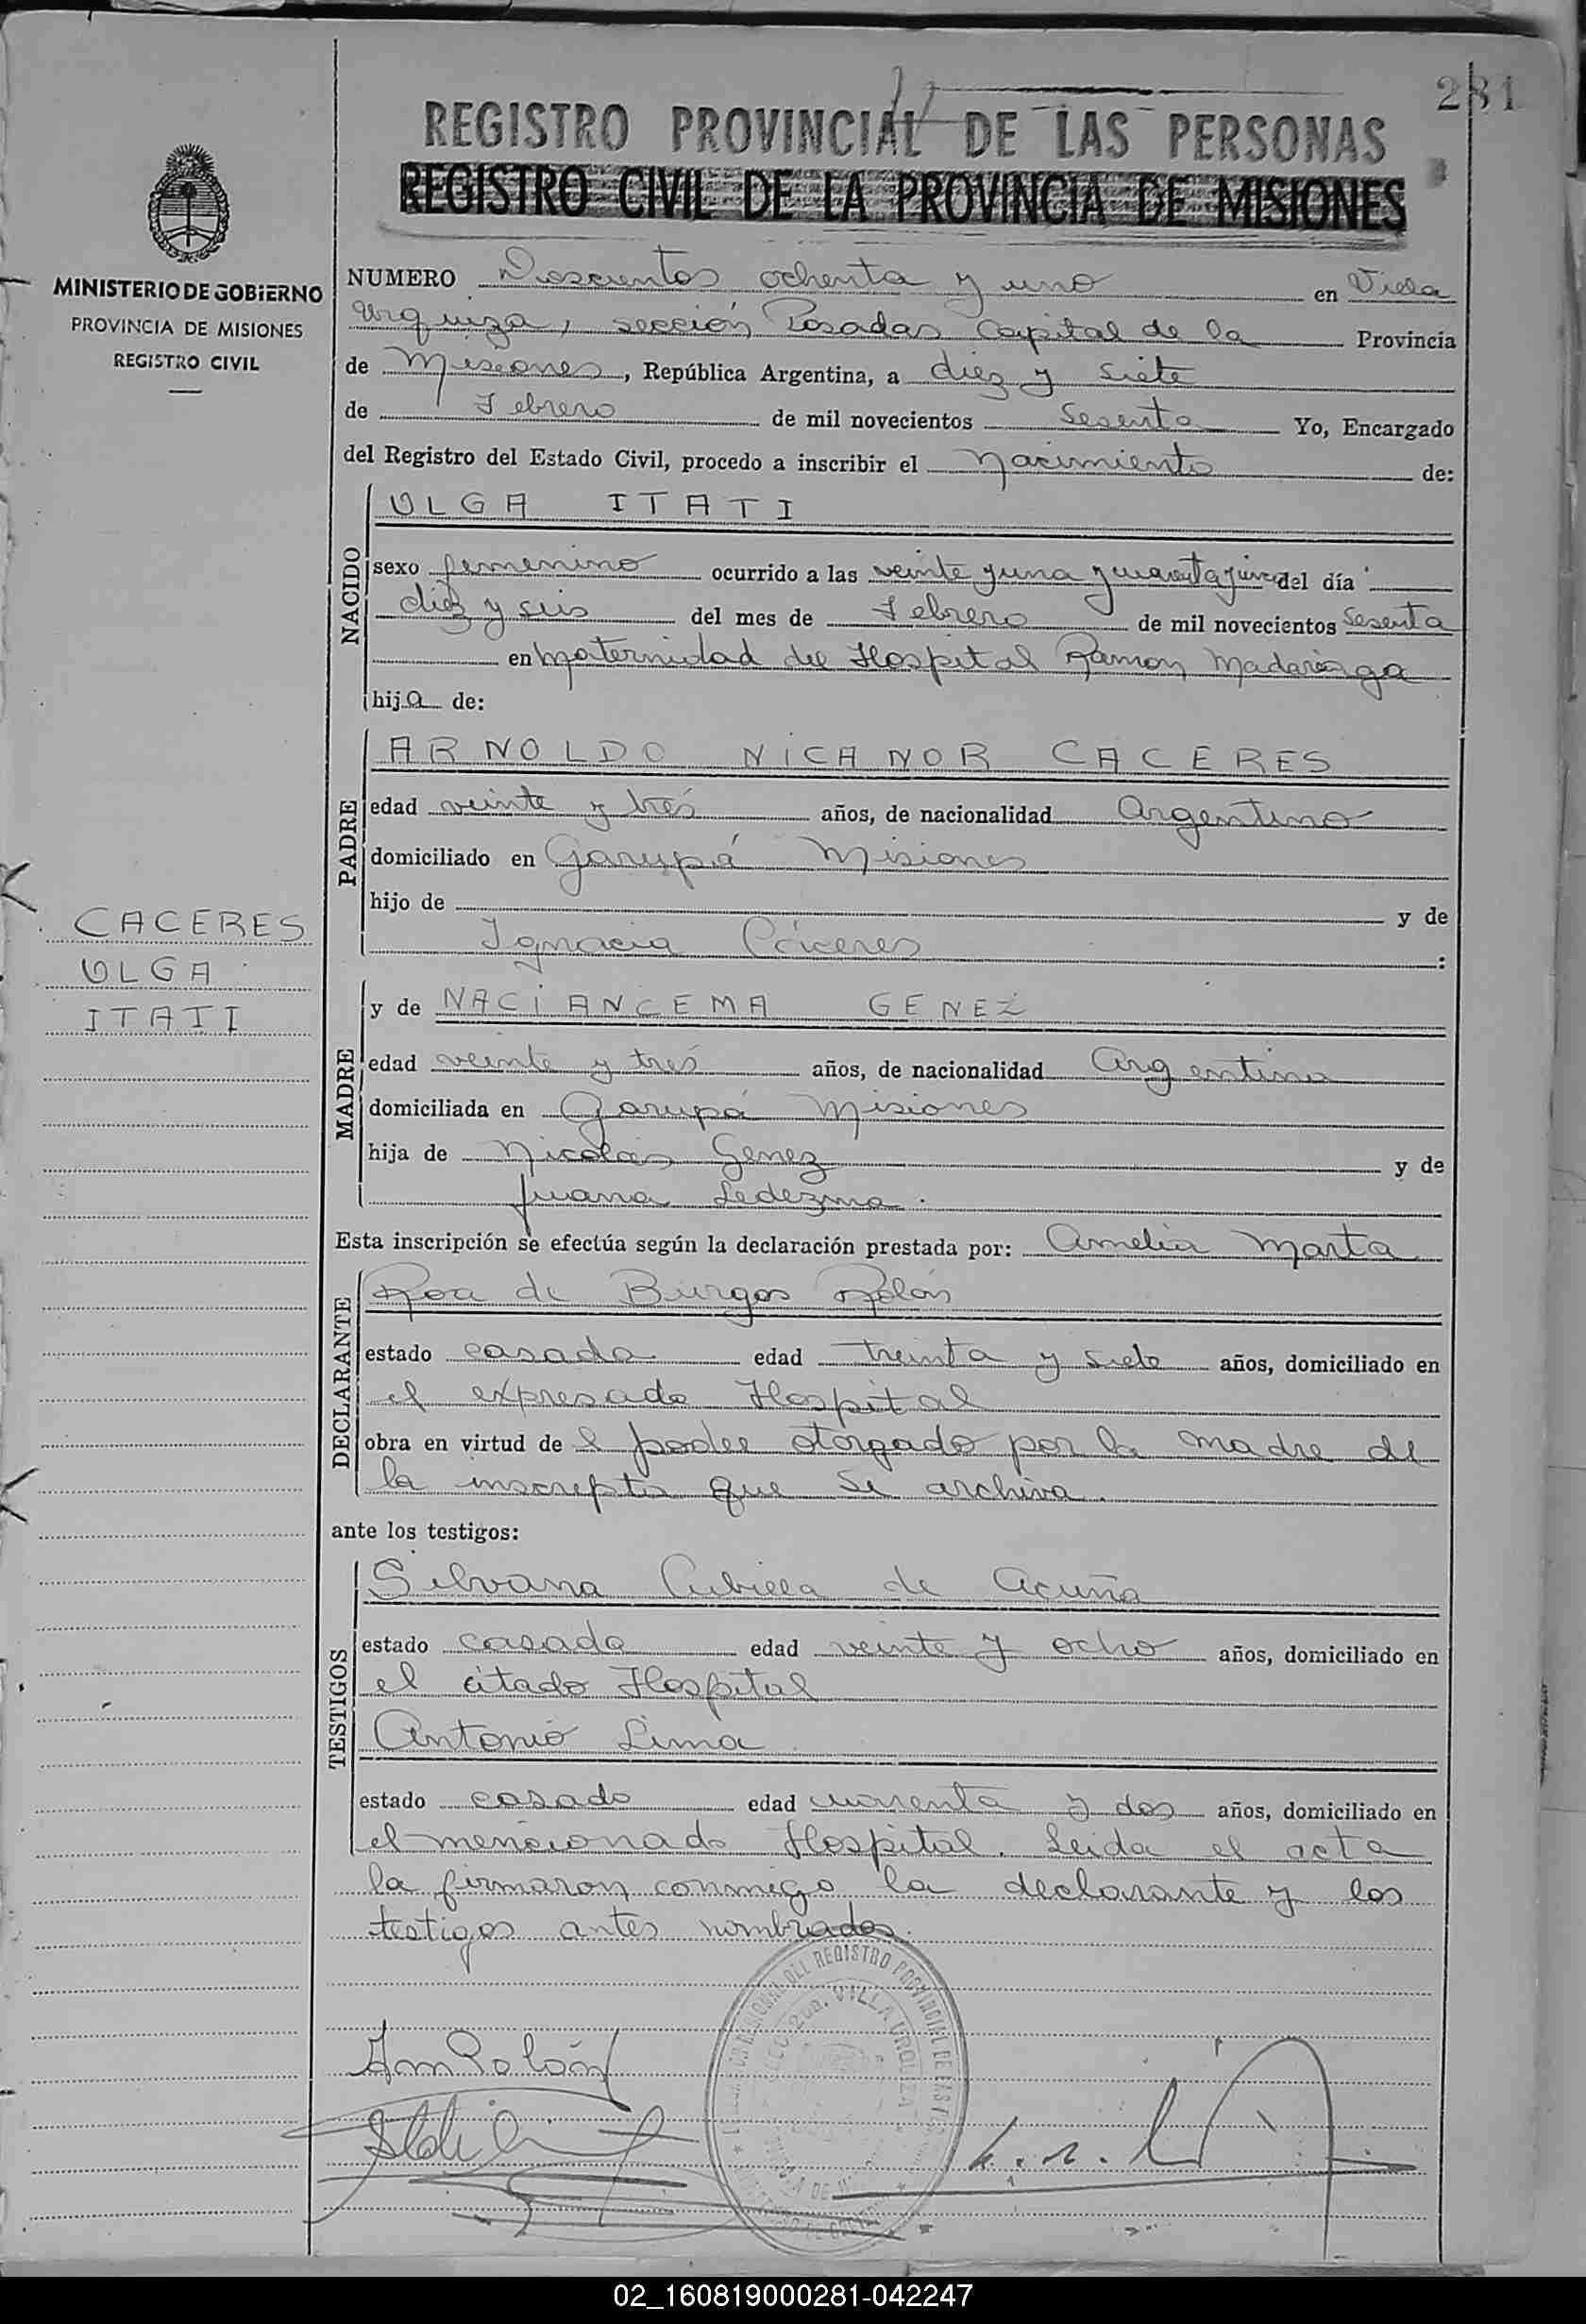 281
REGISTRO PROVINCIAL DE LAS PERSONAS
REGISTRO CIVIL DE LA PROVINCIA DE MISIONES
MINISTERIO DE GOBIERNO
PROVINCIA DE MISIONES
REGISTRO CIVIL
NUMERO Doscientos ochenta y uno en Villa
Urquiza, sección Posadas Capital de la Provincia
de Misiones, República Argentina, a diez y siete
de Febrero de mil novecientos Sesenta Yo, Encargado
del Registro del Estado Civil, procedo a inscribir el Nacimiento de:
NACIDO
OLGA ITATI
sexo femenino ocurrido a las veinte y una y cuarenta y cinco del día
diez y seis del mes de Febrero de mil novecientos Sesenta
en Maternidad del Hospital Ramon Madariaga
hija de:
PADRE
ARNOLDO NICANOR CACERES
edad veinte y tres años, de nacionalidad Argentino
domiciliado en Garupá Misiones
hijo de y de
Ignacia Cáceres :
CACERES
OLGA
ITATI
MADRE
y de NACIANCEMA GENEZ
edad veinte y tres años, de nacionalidad Argentina
domiciliada en Garupá Misiones
hija de Nicolás Genez y de
Juana Ledezma.
Esta inscripción se efectúa según la declaración prestada por: Amelia Marta
DECLARANTE
Roa de Burgos Rolón
estado casada edad treinta y siete años, domiciliado en
el expresado Hospital
obra en virtud de l poder otorgado por la madre de
la inscripta que se archiva.
ante los testigos:
TESTIGOS
Silvana Cubilla de Acuña
estado casada edad veinte y ocho años, domiciliado en
el citado Hospital
Antonio Lima
estado casado edad cuarenta y dos años, domiciliado en
el mencionado Hospital. Leida el acta
la firmaron conmigo la declarante y los
testigos antes nombrados.
DEL REGISTRO PROVINCIAL DE LAS
VILLA URQUIZA
AmRolón
02_160819000281-042247